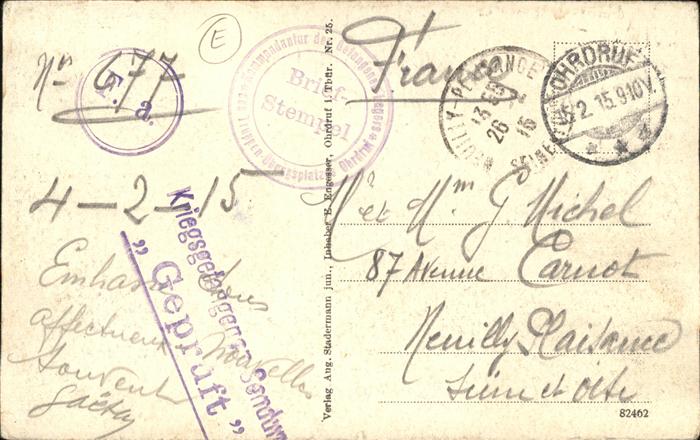 Nr 677
E
F. a.
4-2-15
Embassa
affectueux Nouvelles
souvent
Gaëtan
Kriegsgefangenen-Sendung
"Geprüft"
Kommandantur des Gefangenenlagers Ohrdruf
Brief-
Stempel
Verlag Aug. Stadermann jun., Inhaber E. Engesser, Ohrdruf i. Thür. Nr. 25.
France
NEUILLY-PLAISANCE
13
26 - 2
15
SEINE
OHRDRUF
15.2.15.9-10V.
Mr et Mm G Michel
87 Avenue Carnot
Neuilly Plaisance
Seine et Oise
82462